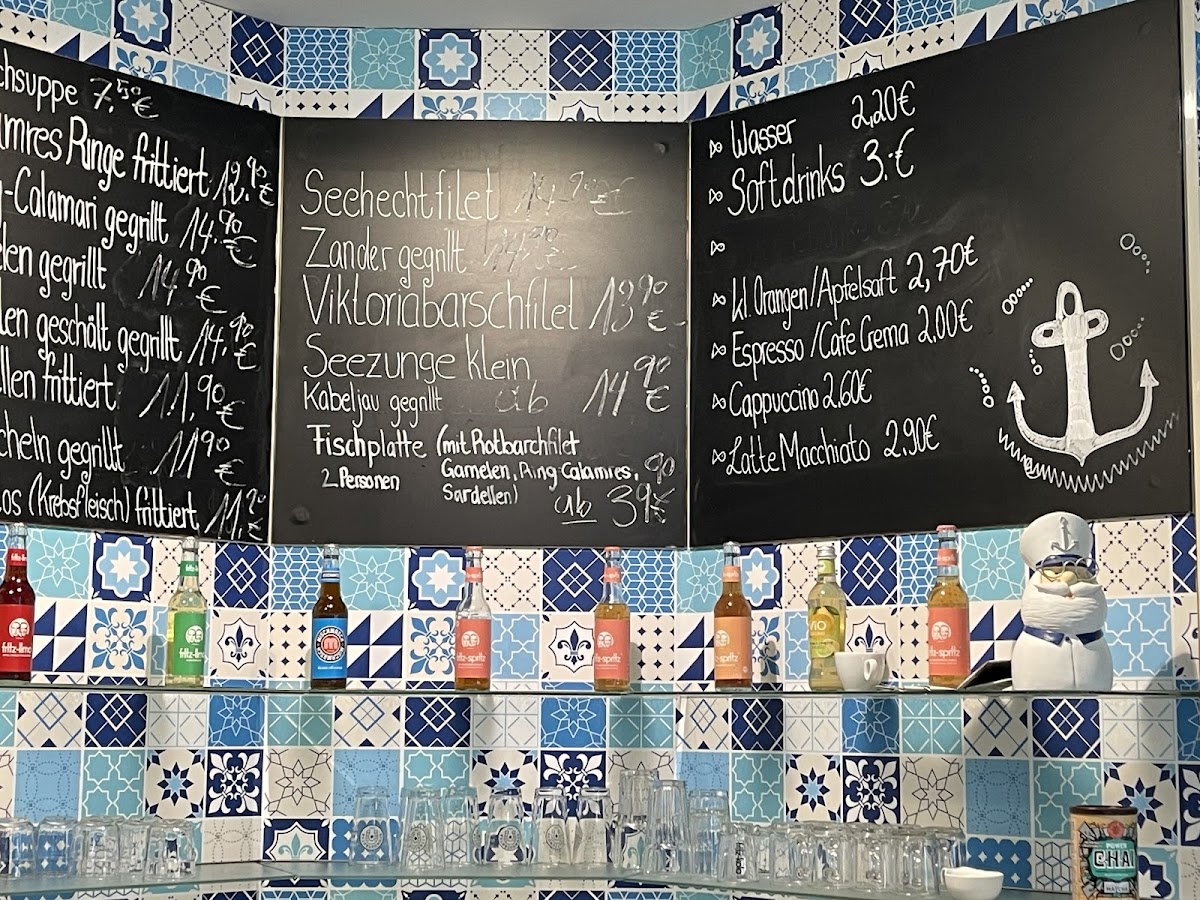 7,50€
Ringe frittiert 12,90€
Calamari gegrillt 14,90€
gegrillt 14,90€
geschält gegrillt 14,90€
frittiert 11,90€
gegrillt 11,90€
(Krebsfleisch) frittiert 11,90€
Seehechtfilet 14,90€
Zander gegrillt 14,90€
Viktoriabarschfilet 13,90€
Seezunge klein
Kabeljau gegrillt ab 14,90€
Fischplatte (mit Rotbarchfilet
2 Personen Garnelen, Ring-Calamres,
Sardellen) ab 39,90€
Wasser 2,20€
Softdrinks 3.-€
kl. Orangen/Apfelsaft 2,70€
Espresso/Cafe Crema 2,00€
Cappuccino 2.60€
Latte Macchiato 2.90€
fritz-limo
fritz-limo
fritz-spritz
fritz-spritz
fritz-spritz
fritz-spritz
POWER
CHAI
MATCHA